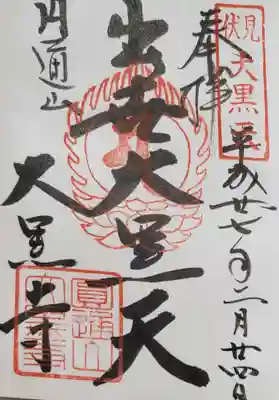 伏見
大黒天
奉拝
平成廿七年二月廿四日
出世大黒天
円通山
大黒寺